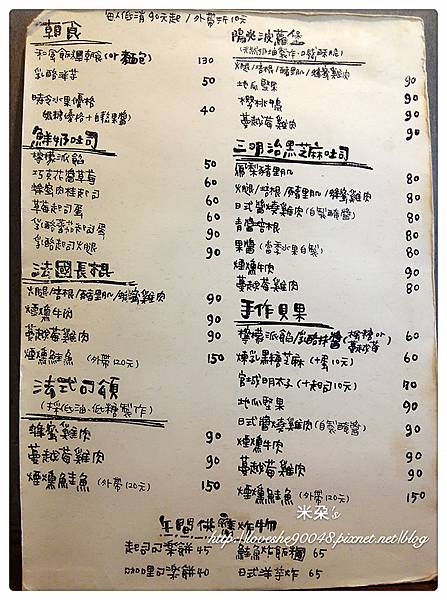 每人低消90元起 / 外帶折10元
朝食
和風飯糰朝食(or麵包) 130
乳酪洋芋 50
時令水果優格
(低糖優格+自製果醬) 40
鮮奶吐司
檸檬派餡 50
巧克花醬草莓 60
蜂蜜肉桂起司 60
草莓起司蛋 60
乳酪蕃茄起司蛋 90
乳酪起司火腿 90
法國長棍
火腿/培根/豬里肌/蜂蜜雞肉 90
煙燻牛肉 90
蔓越莓雞肉 90
煙燻鮭魚 (外帶120元) 150
法式可頌
(採低油.低糖製作)
蜂蜜雞肉 90
蔓越莓雞肉 90
煙燻鮭魚 (外帶120元) 150
陽光波蘿堡
火腿/培根/豬里肌/蜂蜜雞肉 90
地瓜堅果 90
櫻桃鴨 90
蔓越莓雞肉 90
三明治黑芝麻吐司
豬里肌 80
火腿/培根/豬里肌/蜂蜜雞肉 80
日式醬燒雞肉(自製醃醬) 80
青醬培根 80
果醬 (當季水果自製) 80
煙燻牛肉 80
蔓越莓雞肉 80
手作貝果
檸檬派餡/乳酪抹醬(檸檬or蔓越莓) 60
煉乳黑糖芝麻 (+蛋10元) 60
宮城明太子 (+起司10元) 70
地瓜堅果 90
日式醬燒雞肉(自製醃醬) 90
煙燻牛肉 90
蔓越莓雞肉 90
煙燻鮭魚 (外帶120元) 150
午間供應炸物
起司可樂餅 45 鮭魚炸飯糰 65
咖哩可樂餅 40 日式洋芋炸 65
米朵's
http://loveshe90048.pixnet.net/blog